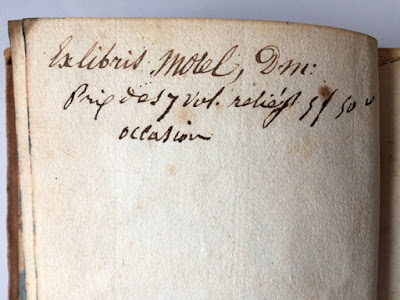 Ex libris Motel, Dm:
Prix des 7 vol. reliés 5f 50
occasion